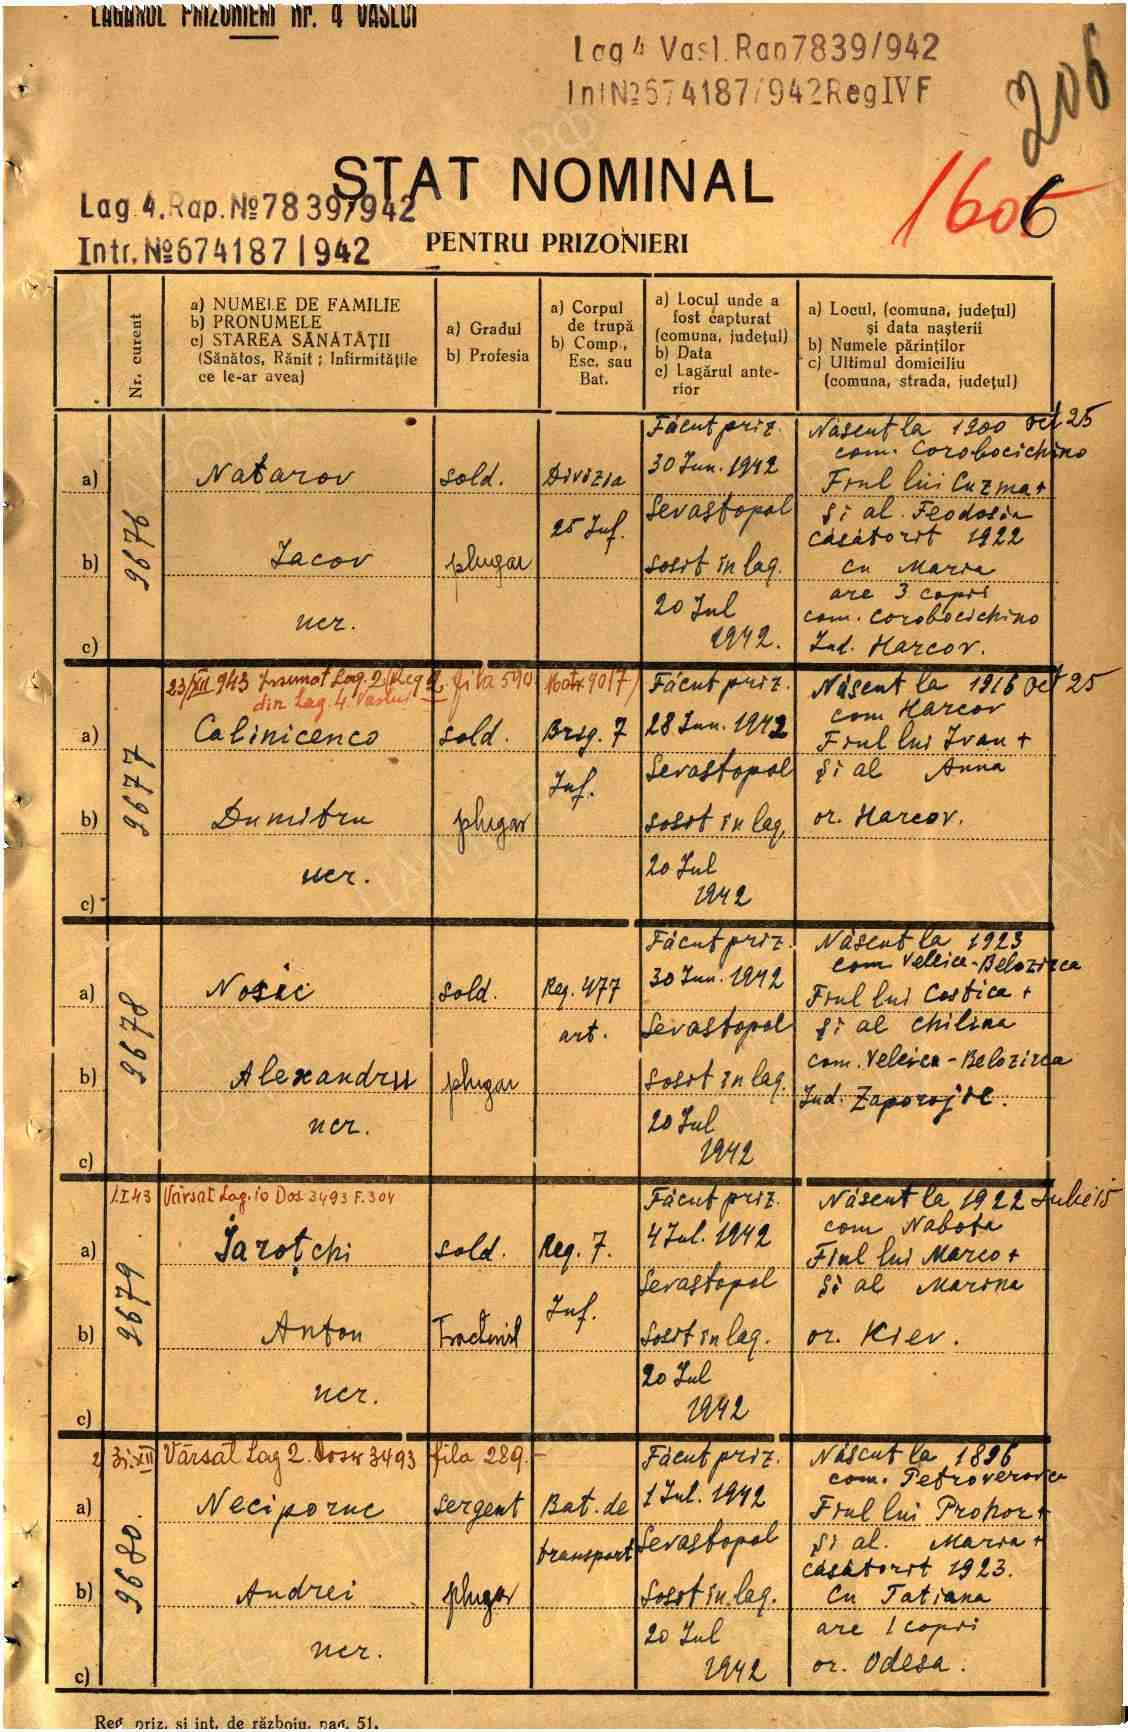 LAGARUL PRIZONIERI Nr. 4 VASLUI
Lag 4 Vasl. Rap 7839/942
Int №674187/942 Reg IV F
206
STAT NOMINAL
Lag 4. Rap. №7839/942
1606
Intr. №674187/942
PENTRU PRIZONIERI
Nr. curent
a) NUMELE DE FAMILIE
b) PRONUMELE
c) STAREA SĂNĂTĂȚII
(Sănătos, Rănit; Infirmitățile
ce le-ar avea)
a) Gradul
b) Profesia
a) Corpul
de trupă
b) Comp.,
Esc. sau
Bat.
a) Locul unde a
fost capturat
(comuna, județul)
b) Data
c) Lagărul ante-
rior
a) Locul, (comuna, județul)
și data nașterii
b) Numele părinților
c) Ultimul domiciliu
(comuna, strada, județul)
9676
a) Natarov
b) Iacov
c) ucr.
sold.
plugar
Divizia
25 Inf.
Făcut priz.
30 Iun. 1942
Sevastopol
sosit în lag.
20 Iul
1942.
Născut la 1900 Oct 25
com. Corobocichino
Fiul lui Cuzma +
și al Feodosia
căsătorit 1922
cu Maria
are 3 copii
com. Corobocichino
Jud. Harcov.
23/XII 943 Lag. 2 Reg 2 fila 590
din Lag. 4. Vaslui
9677
a) Calinicenco
b) Dumitru
c) ucr.
sold.
plugar
Brig. 7
Inf.
Făcut priz.
28 Iun. 1942
Sevastopol
sosit în lag.
20 Iul
1942
Născut la 1916 Oct 25
com Harcov
Fiul lui Ivan +
și al Anna
or. Harcov.
9678
a) Nosic
b) Alexandru
ucr.
c)
sold.
plugar
Reg. 477
art.
Făcut priz.
30 Iun. 1942
Sevastopol
sosit în lag.
20 Iul
1942
Născut la 1923
com Veleica-Belozirca
Fiul lui Costica +
și al Chilina
com. Veleica-Belozirca
Jud. Zaporojie.
1.I 43 Vărsat Lag. 10 Dos 3493 F. 304
9679
a) Iaroțchi
b) Anton
c) ucr.
sold.
Reg. 7.
Inf.
Făcut priz.
4 Iul. 1942
Sevastopol
sosit în lag.
20 Iul
1942
Născut la 1922 Iulie 15
com Nabota
Fiul lui Marco +
și al Marina
or. Kiev.
31.XII Vărsat Lag 2. Dosar 3493 fila 289.
9680.
a) Neciporuc
b) Andrei
ucr.
c)
sergent
plugar
Bat. de
transport
Făcut priz.
1 Iul. 1942
Sevastopol
Sosit în lag.
20 Iul
1942
Născut la 1896
com. Petroverovca
Fiul lui Prohor +
și al. Maria +
căsătorit 1923.
cu Tatiana
are 1 copii
or. Odesa.
Reg. priz. și int. de războiu, pag. 51.